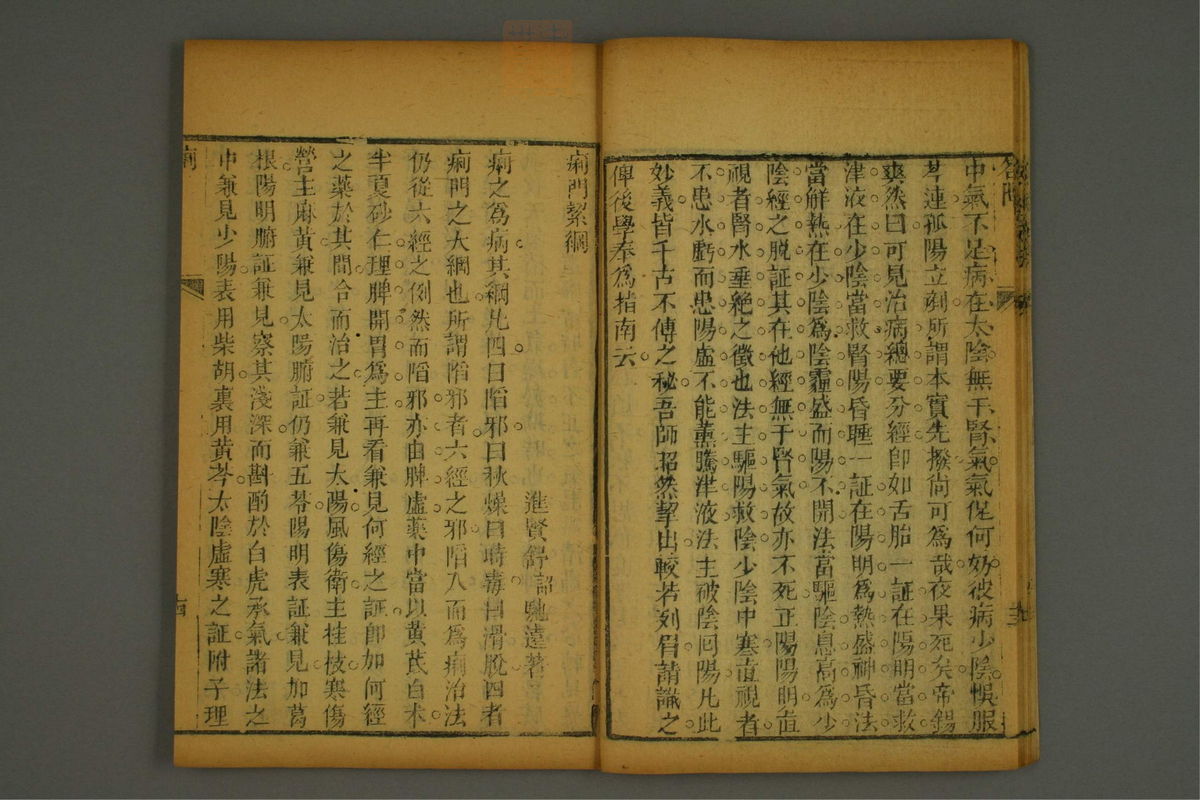 中氣不足病在太陰無干腎氣氣促何妨彼病少陰悞服
芩連孤陽立剷所謂本實先撥尙可爲哉夜果死矣帝錫
爽然曰可見治病總要分經卽如舌胎一証在陽明當救
津液在少陰當救腎陽昏睡一証在陽明爲熱盛神昏法
當解熱在少陰爲陰霾盛而陽不開法當驅陰息高爲少
陰經之脫証其在他經無干腎氣故亦不死正陽陽明直
視者腎水垂絶之徵也法主驅陽救陰少陰中寒直視者
不患水虧而患陽虛不能薰騰津液法主破陰回陽凡此
妙義皆千古不傳之秘吾師昭然挈出較若列眉請識之
俾後學奉爲指南云
痢門絜綱
進賢舒詔馳遠著
痢之爲病其綱凡四曰陷邪曰秋燥曰時毒曰滑脫四者
痢門之大綱也所謂陷邪者六經之邪陷入而爲痢治法
仍從六經之例然而陷邪亦由脾虛藥中當以黃芪白术
半夏砂仁理脾開胃爲主再看兼見何經之証卽加何經
之藥於其間合而治之若兼見太陽風傷衛主桂枝寒傷
營主麻黃兼見太陽腑証仍兼五苓陽明表証兼見加葛
根陽明腑証兼見察其淺深而斟酌於白虎承氣諸法之
中兼見少陽表用柴胡裏用黃芩太陰虛寒之証附子理
痢